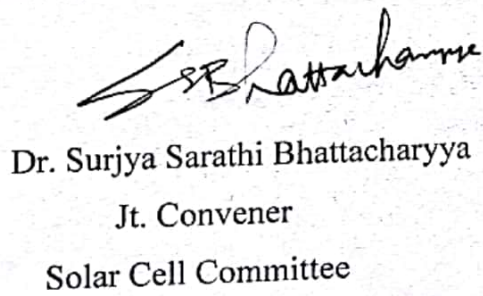 SSBhattacharyya
Dr. Surjya Sarathi Bhattacharyya
Jt. Convener
Solar Cell Committee